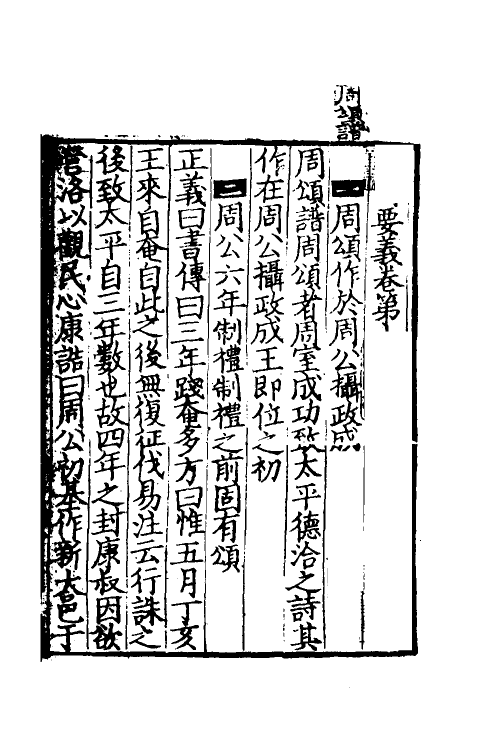 周頌譜
要義卷第
一周頌作於周公攝政成
周頌譜周頌者周室成功致太平德洽之詩其
作在周公攝政成王即位之初
二周公六年制禮制禮之前固有頌
正義曰書傳曰三年踐奄多方曰惟五月丁亥
王來自奄自此之後無復征伐易注云行誅之
後致太平自三年數也故四年之封康叔因欲
營洛以觀民心康誥曰周公初基作新大邑于